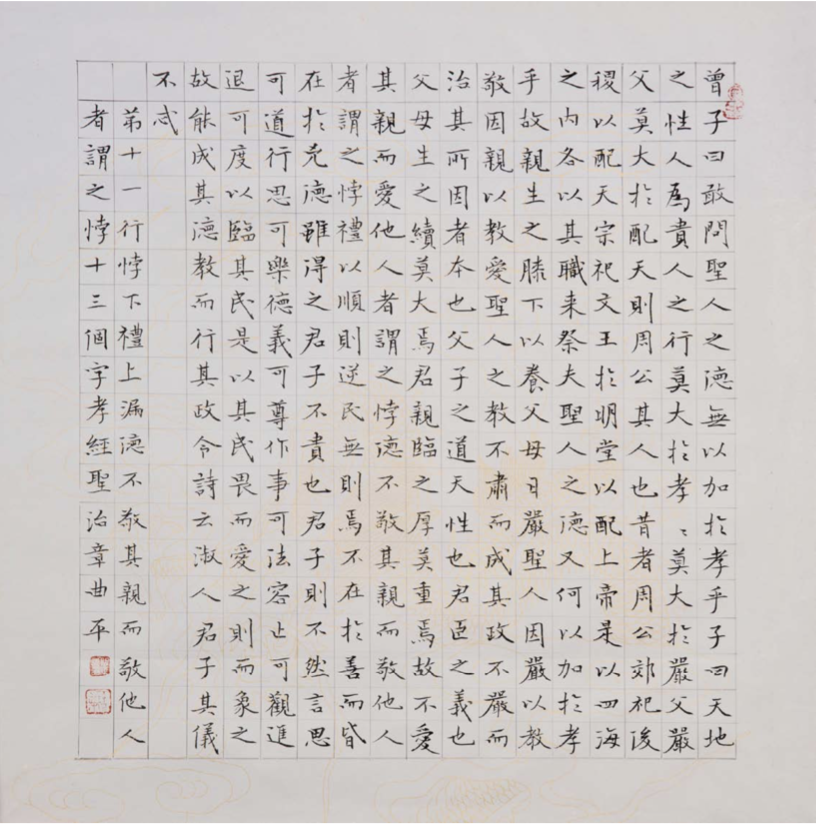 曾子曰敢問聖人之德無以加於孝乎子曰天地
之性人為貴人之行莫大於孝〻莫大於嚴父嚴
父莫大於配天則周公其人也昔者周公郊祀後
稷以配天宗祀文王於明堂以配上帝是以四海
之內各以其職来祭夫聖人之德又何以加於孝
乎故親生之膝下以養父母日嚴聖人因嚴以教
敬因親以教愛聖人之教不肅而成其政不嚴而
治其所因者本也父子之道天性也君臣之義也
父母生之續莫大焉君親臨之厚莫重焉故不愛
其親而愛他人者謂之悖德不敬其親而敬他人
者謂之悖禮以順則逆民無則焉不在於善而皆
在於兇德雖得之君子不貴也君子則不然言思
可道行思可樂德義可尊作事可法容止可觀進
退可度以臨其民是以其民畏而愛之則而象之
故能成其德教而行其政令詩云淑人君子其儀
不忒
第十一行悖下禮上漏德不敬其親而敬他人
者謂之悖十三個字孝經聖治章曲平